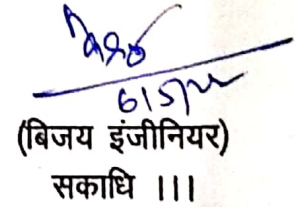 6/5/22
(बिजय इंजीनियर)
सकाधि ।।।